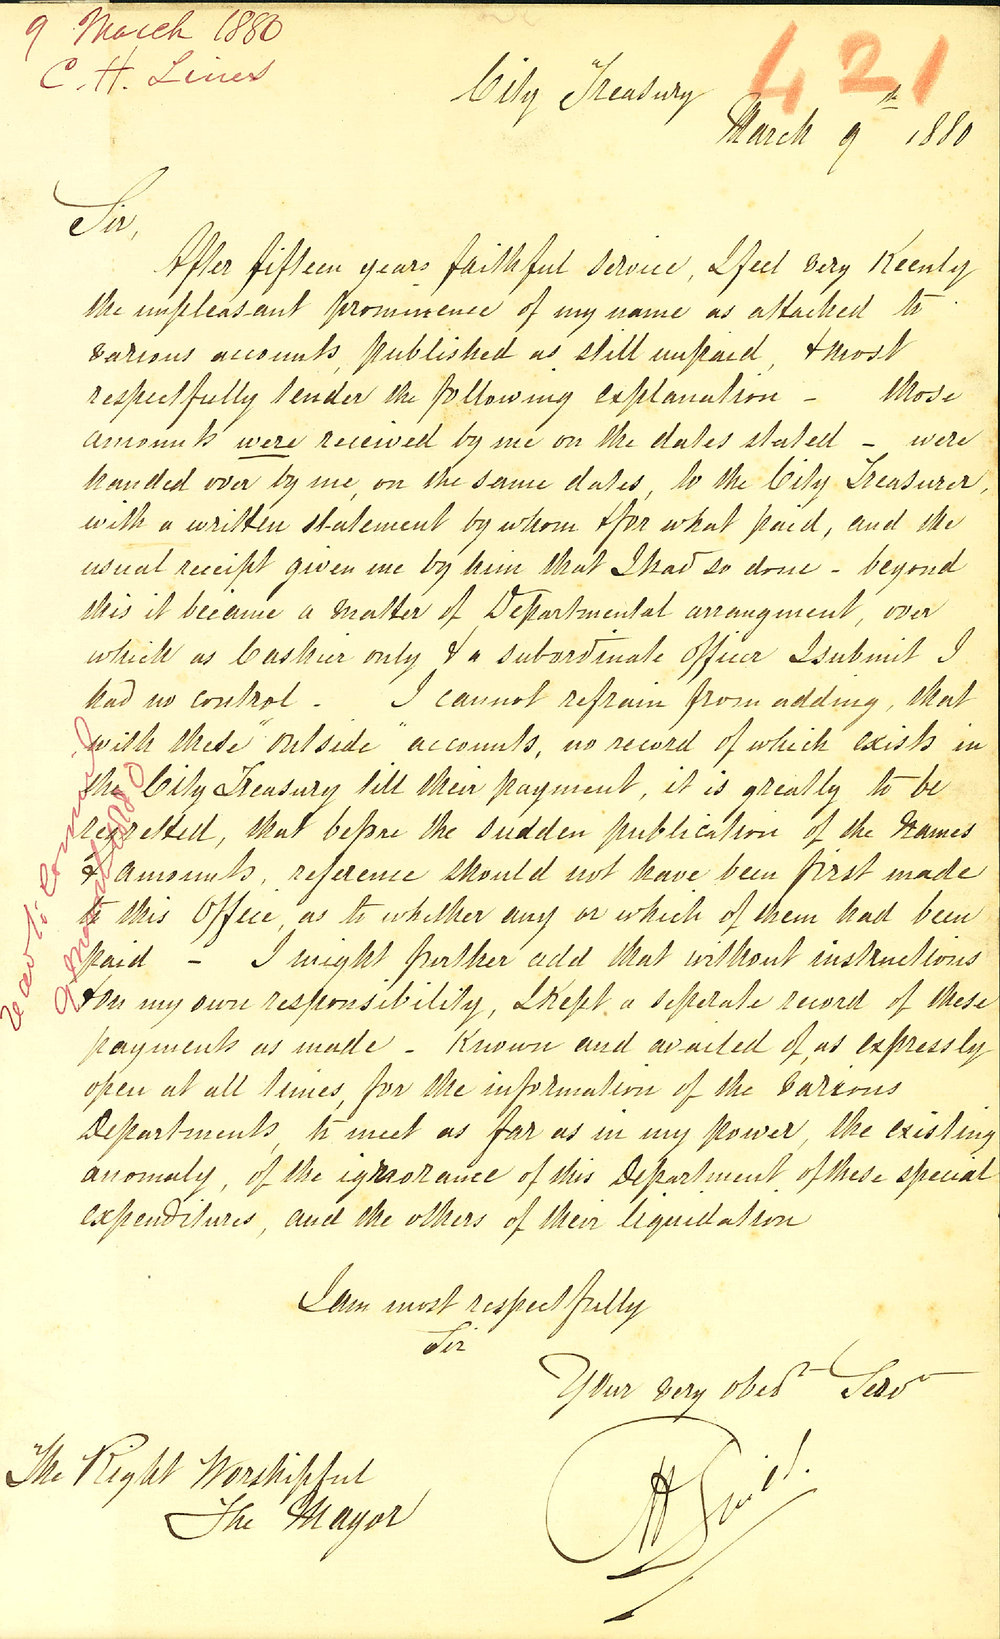 9 March 1880
C. H. Lines
421
City Treasury
March 9th 1880
Sir,
After fifteen years faithful service, I feel very Keenly
the unpleasant prominence of my name as attached to
various accounts, published as still unpaid, & most
respectfully tender the following explanation - those
amounts were received by me on the dates stated - were
handed over by me, on the same dates, to the City Treasurer,
with a written statement by whom & for what paid, and the
usual receipt given me by him that I had so done - beyond
this it became a matter of Departmental arrangment, over
which as Cashier only & a subordinate Officer I submit I
had no control - I cannot refrain from adding, that
with these "outside" accounts, no record of which exists in
the City Treasury till their payment, it is greatly to be
regretted, that before the sudden publication of the Names
& Amounts, reference should not have been first made
to this Office, as to whether any or which of them had been
paid - I might further add that without instructions
& on my own responsibility, I Kept a seperate record of these
payments as made - Known and availed of, as expressly
open at all times, for the information of the various
Departments, to meet as far as in my power, the existing
anomaly, of the ignorance of this Department of these special
expenditures, and the others of their liquidation
I am most respectfully
Sir
Your very obedt Servt
The Right Worshipful
The Mayor